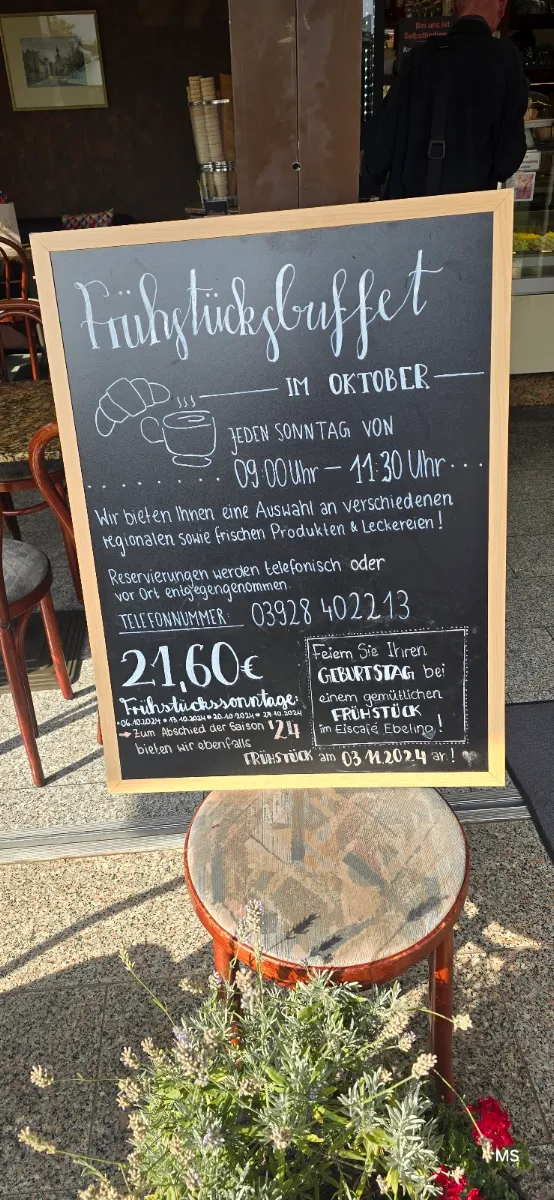 Bei uns ist
Frühstücksbuffet
IM OKTOBER
JEDEN SONNTAG VON
09:00 Uhr – 11:30 Uhr
Wir bieten Ihnen eine Auswahl an verschiedenen
regionalen sowie frischen Produkten & Leckereien!
Reservierungen werden telefonisch oder
vor Ort entgegengenommen.
TELEFONNUMMER: 03928 402213
21,60€
Frühstückssonntage:
• 06.10.2024 • 13.10.2024 • 20.10.2024 • 27.10.2024
→ Zum Abschied der Saison '24
bieten wir ebenfalls
FRÜHSTÜCK am 03.11.2024 an! ♥
Feiern Sie Ihren
GEBURTSTAG bei
einem gemütlichen
FRÜHSTÜCK
im Eiscafé Ebeling!
MS